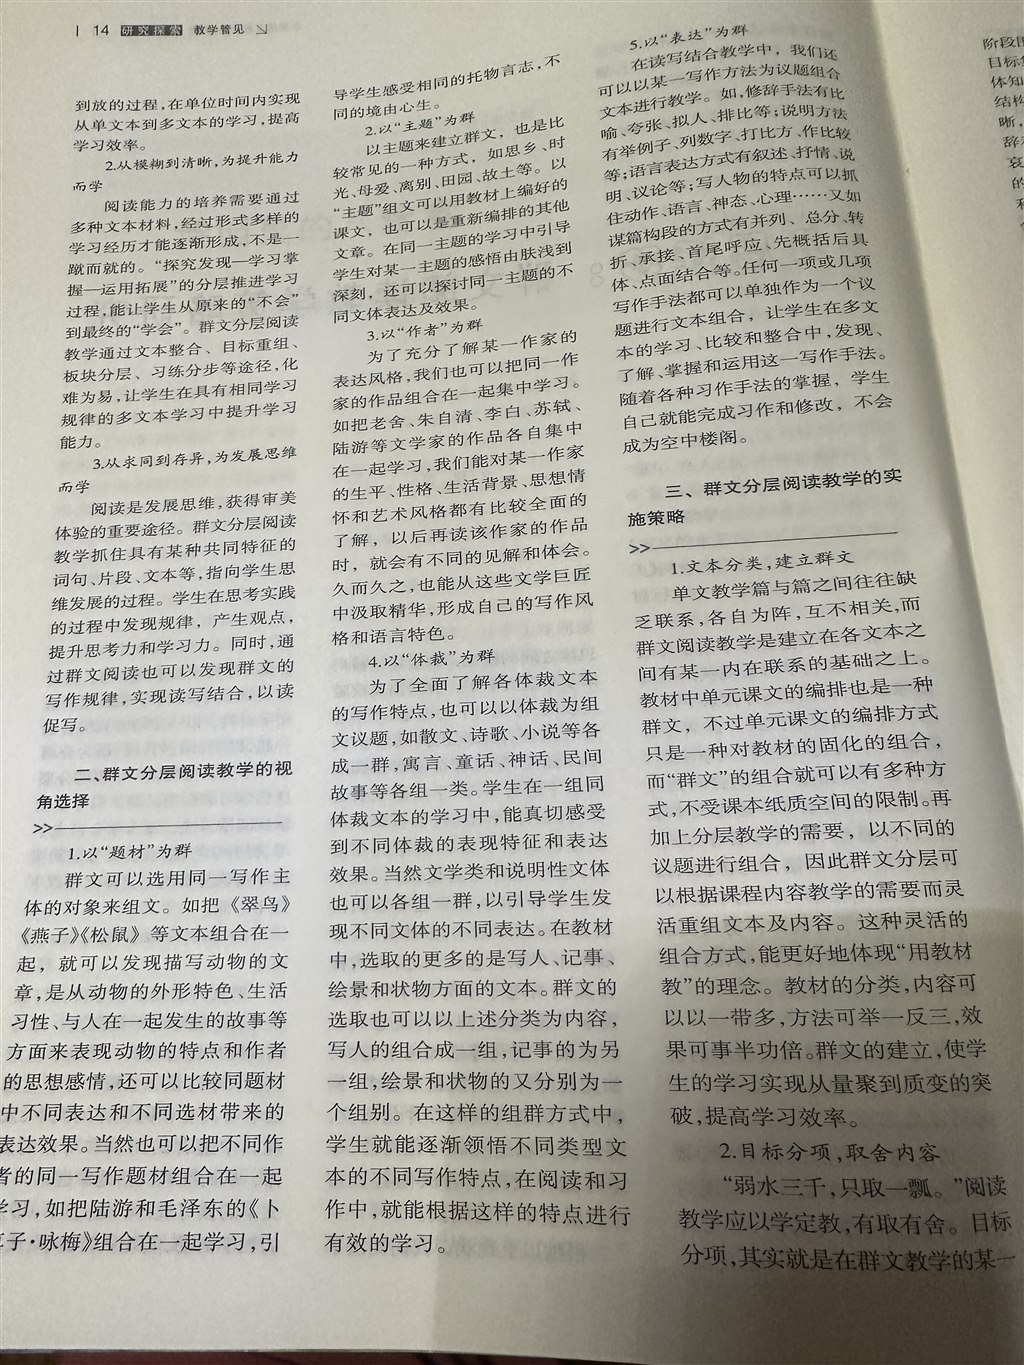 14 研究探索 教学管见
到放的过程,在单位时间内实现
从单文本到多文本的学习,提高
学习效率。
2.从模糊到清晰,为提升能力
而学
阅读能力的培养需要通过
多种文本材料,经过形式多样的
学习经历才能逐渐形成,不是一
蹴而就的。“探究发现—学习掌
握—运用拓展”的分层推进学习
过程,能让学生从原来的“不会”
到最终的“学会”。群文分层阅读
教学通过文本整合、目标重组、
板块分层、习练分步等途径,化
难为易,让学生在具有相同学习
规律的多文本学习中提升学习
能力。
3.从求同到存异,为发展思维
而学
阅读是发展思维,获得审美
体验的重要途径。群文分层阅读
教学抓住具有某种共同特征的
词句、片段、文本等,指向学生思
维发展的过程。学生在思考实践
的过程中发现规律,产生观点,
提升思考力和学习力。同时,通
过群文阅读也可以发现群文的
写作规律,实现读写结合,以读
促写。
二、群文分层阅读教学的视
角选择
>>
1.以“题材”为群
群文可以选用同一写作主
体的对象来组文。如把《翠鸟》
《燕子》《松鼠》等文本组合在一
起,就可以发现描写动物的文
章,是从动物的外形特色、生活
习性、与人在一起发生的故事等
方面来表现动物的特点和作者
的思想感情,还可以比较同题材
中不同表达和不同选材带来的
表达效果。当然也可以把不同作
者的同一写作题材组合在一起
学习,如把陆游和毛泽东的《卜
算子·咏梅》组合在一起学习,引
导学生感受相同的托物言志,不
同的境由心生。
2.以“主题”为群
以主题来建立群文,也是比
较常见的一种方式,如思乡、时
光、母爱、离别、田园、故土等。以
“主题”组文可以用教材上编好的
课文,也可以是重新编排的其他
文章。在同一主题的学习中引导
学生对某一主题的感悟由肤浅到
深刻,还可以探讨同一主题的不
同文体表达及效果。
3.以“作者”为群
为了充分了解某一作家的
表达风格,我们也可以把同一作
家的作品组合在一起集中学习。
如把老舍、朱自清、李白、苏轼、
陆游等文学家的作品各自集中
在一起学习,我们能对某一作家
的生平、性格、生活背景、思想情
怀和艺术风格都有比较全面的
了解,以后再读该作家的作品
时,就会有不同的见解和体会。
久而久之,也能从这些文学巨匠
中汲取精华,形成自己的写作风
格和语言特色。
4.以“体裁”为群
为了全面了解各体裁文本
的写作特点,也可以以体裁为组
文议题,如散文、诗歌、小说等各
成一群,寓言、童话、神话、民间
故事等各组一类。学生在一组同
体裁文本的学习中,能真切感受
到不同体裁的表现特征和表达
效果。当然文学类和说明性文体
也可以各组一群,以引导学生发
现不同文体的不同表达。在教材
中,选取的更多的是写人、记事、
绘景和状物方面的文本。群文的
选取也可以以上述分类为内容,
写人的组合成一组,记事的为另
一组,绘景和状物的又分别为一
个组别。在这样的组群方式中,
学生就能逐渐领悟不同类型文
本的不同写作特点,在阅读和习
作中,就能根据这样的特点进行
有效的学习。
5.以“表达”为群
在读写结合教学中,我们还
可以以某一写作方法为议题组合
文本进行教学。如,修辞手法有比
喻、夸张、拟人、排比等;说明方法
有举例子、列数字、打比方、作比较
等;语言表达方式有叙述、抒情、说
明、议论等;写人物的特点可以抓
住动作、语言、神态、心理……又如
谋篇构段的方式有并列、总分、转
折、承接、首尾呼应、先概括后具
体、点面结合等。任何一项或几项
写作手法都可以单独作为一个议
题进行文本组合,让学生在多文
本的学习、比较和整合中,发现、
了解、掌握和运用这一写作手法。
随着各种习作手法的掌握,学生
自己就能完成习作和修改,不会
成为空中楼阁。
三、群文分层阅读教学的实
施策略
>>
1.文本分类,建立群文
单文教学篇与篇之间往往缺
乏联系,各自为阵,互不相关,而
群文阅读教学是建立在各文本之
间有某一内在联系的基础之上。
教材中单元课文的编排也是一种
群文,不过单元课文的编排方式
只是一种对教材的固化的组合,
而“群文”的组合就可以有多种方
式,不受课本纸质空间的限制。再
加上分层教学的需要,以不同的
议题进行组合,因此群文分层可
以根据课程内容教学的需要而灵
活重组文本及内容。这种灵活的
组合方式,能更好地体现“用教材
教”的理念。教材的分类,内容可
以以一带多,方法可举一反三,效
果可事半功倍。群文的建立,使学
生的学习实现从量聚到质变的突
破,提高学习效率。
2.目标分项,取舍内容
“弱水三千,只取一瓢。”阅读
教学应以学定教,有取有舍。目标
分项,其实就是在群文教学的某一
阶段
目标
体知
结构
晰,
辞
的